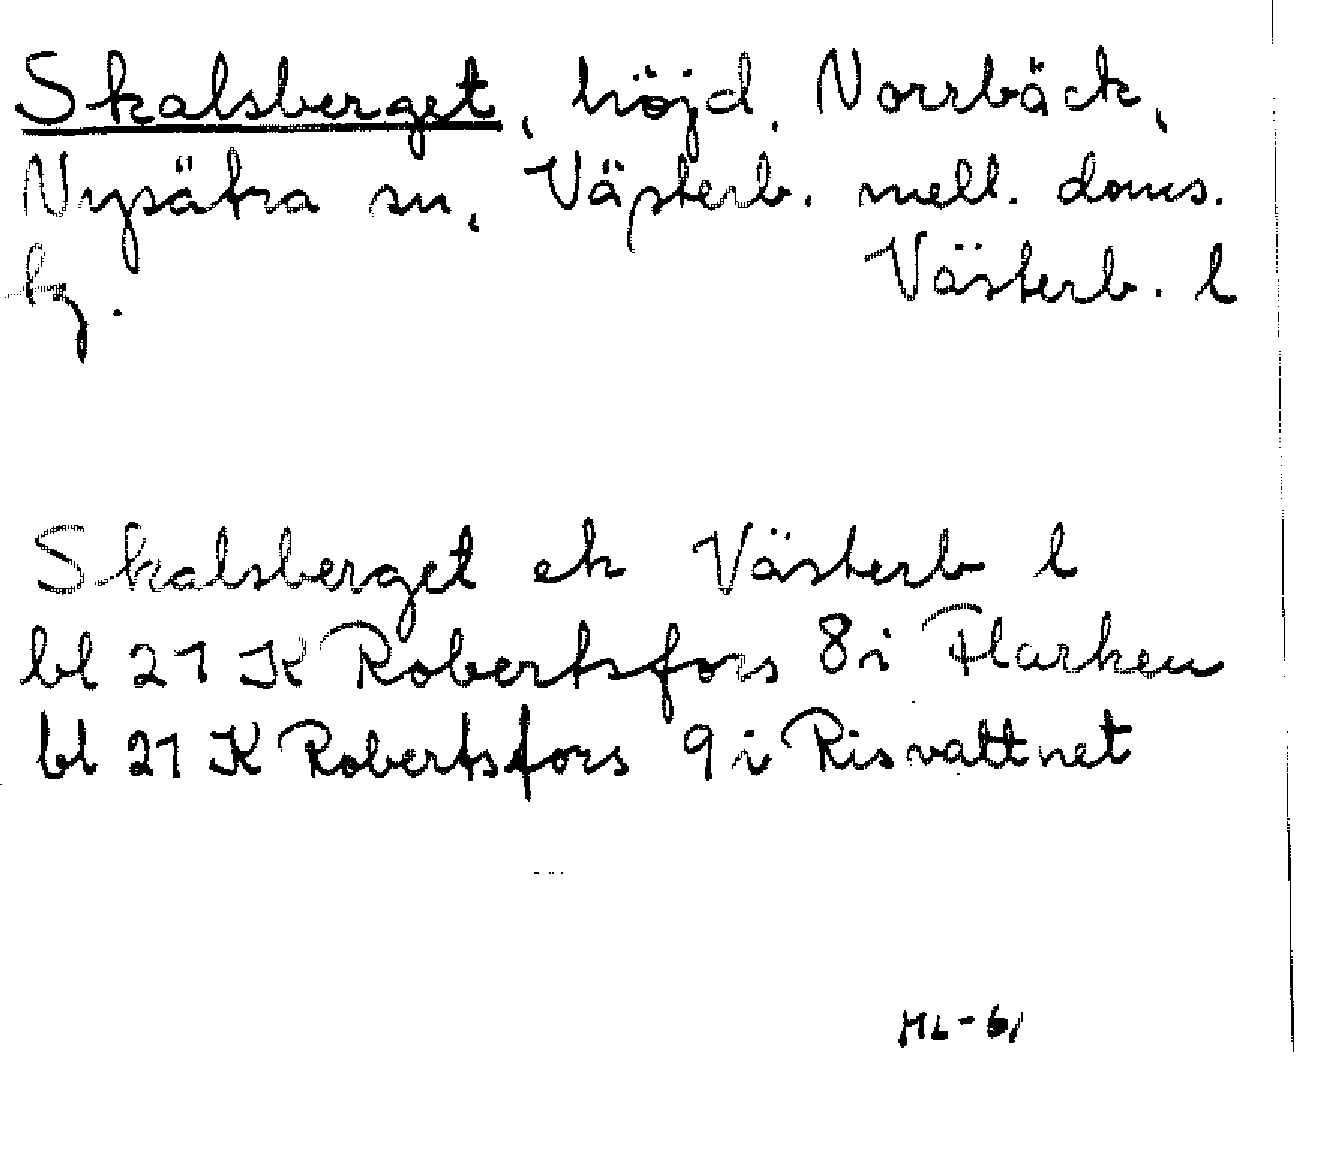 Skalsberget, höjd, Norrbäck,
Nysätra sn, Västerb. mell. doms.
tg. Västerb. l
Skalsberget ek Västerb l
bl 21 K Robertsfors 8i Flarken
bl 21 K Robertsfors 9i Risvattnet
ML-61